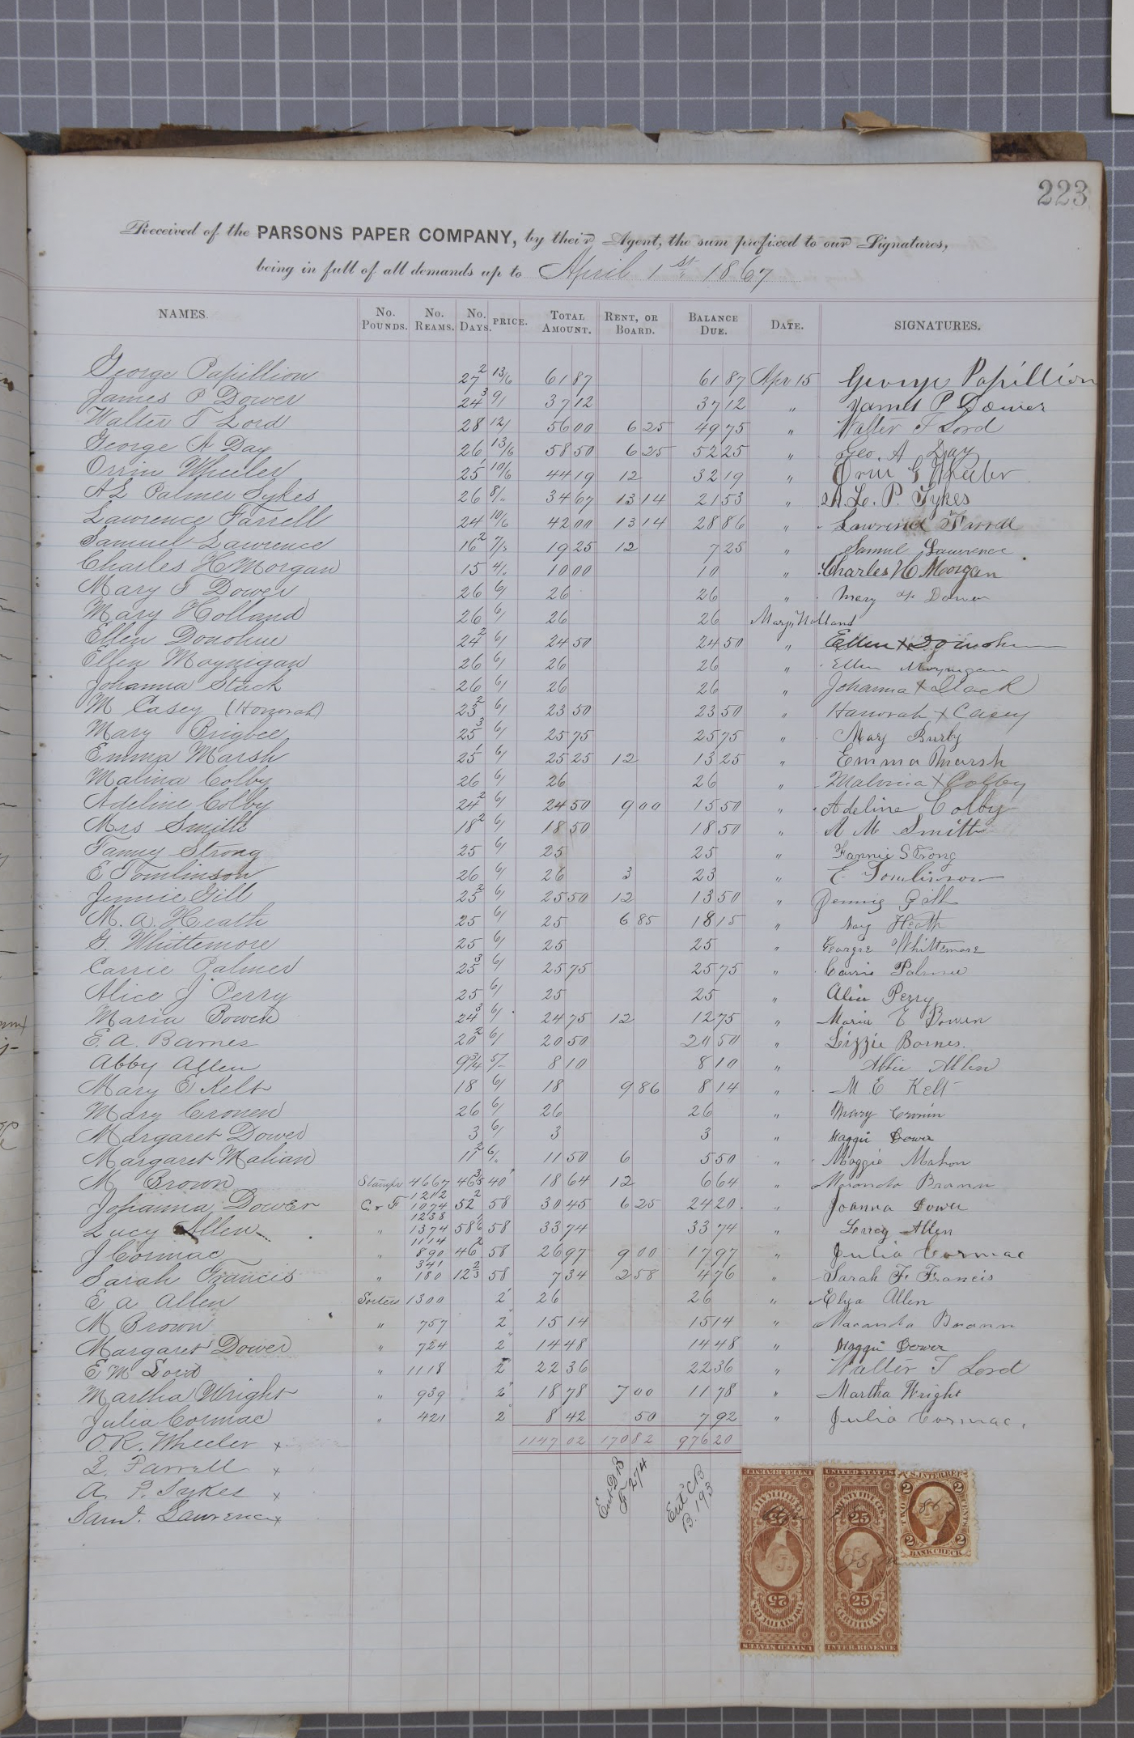 223
Received of the PARSONS PAPER COMPANY, by their Agent, the sum prefixed to our Signatures,
being in full of all demands up to April 1st 1867
NAMES. No. Pounds. No. Reams. No. Days. PRICE. Total Amount. Rent, or Board. Balance Due. Date. SIGNATURES.
George Papillion 27 2 13/6 61 87 61 87 Apr 15 George Papillion
James P Dower 24 3 9/ 37 12 37 12 " James P Dower
Walter T Lord 28 12/ 56 00 6 25 49 75 " Walter T Lord
George A Day 26 13/6 58 50 6 25 52 25 " Geo. A Day
Orrin Wheeler 25 1 10/6 44 19 12 32 19 " Orrin G Wheeler
A L Palmer Sykes 26 8/- 34 67 13 14 21 53 " A. L. P. Sykes
Lawrence Farrell 24 10/6 42 00 13 14 28 86 "
Samuel Lawrence 16 2 7/- 19 25 12 7 25 " Samuel Lawrence
Charles H Morgan 15 4/- 10 00 10 " Charles H Morgan
Mary T Dower 26 6/ 26 26 " Mary F Dower
Mary Holland 26 6/ 26 26 Mary Holland
Ellen Donohue 24 2 6/ 24 50 24 50 " Ellen x Donohue
Ellen Moynigan 26 6/ 26 26 " Ellen Moynigan
Johanna Stack 26 6/ 26 26 " Johanna x Stack
M Casey (Honorah) 23 2 6/ 23 50 23 50 " Hanorah x Casey
Mary Brigbee 25 3 6/ 25 75 25 75 " Mary Burby
Emma Marsh 25 1 6/ 25 25 12 13 25 " Emma Marsh
Malina Colby 26 6/ 26 26 " Malvina x Colby
Adeline Colby 24 2 6/ 24 50 9 00 15 50 " Adeline Colby
Mrs Smith 18 2 6/ 18 50 18 50 " A M Smith
Fanney Strong 25 6/ 25 25 " Fannie Strong
E Tomlinson 26 6/ 26 3 23 " E Tomlinson
Jennie Gill 25 2 6/ 25 50 12 13 50 "
M. A. Heath 25 6/ 25 6 85 18 15 " May Heath
G. Whittemore 25 6/ 25 25 " Georgie Whittemore
Carrie Palmer 25 3 6/ 25 75 25 75 " Carrie Palmer
Alice J Perry 25 6/ 25 25 " Alice Perry
Maria Bowen 24 3 6/ 24 75 12 12 75 " Maria E Bowen
E. A. Barnes 20 2 6/ 20 50 20 50 " Lizzie Barnes.
Abby Allen 9 3/4 5/- 8 10 8 10 " Abbie Allen
Mary E Kelt 18 6/ 18 9 86 8 14 " M E Kelt
Mary Cronen 26 6/ 26 26 " Mary Cronin
Margaret Dower 3 6/ 3 3 " Maggie Dower
Margaret Mahan 11 2 6/- 11 50 6 5 50 " Maggie Mahon
M Brown Stamps 4667 46 3/5 40 18 64 12 6 64 " Maranda Brown
Johanna Dower C & F 1212 1074 52 2 58 30 45 6 25 24 20 " Joanna Dower
Lucy Allen " 1238 1374 58 58 33 74 33 74 " Lucy Allen
J Cormac " 1114 890 46 2 58 26 97 9 00 17 97 " Julia Cormac
Sarah Francis " 341 180 12 2/3 58 7 34 2 58 4 76 " Sarah F. Francis
E A Allen Sorters 1300 2 26 26 " Eliza Allen
M Brown " 757 2 15 14 15 14 " Maranda Brown
Margaret Dower " 724 2 14 48 14 48 " Maggie Dower
E M Lord " 1118 2 22 36 22 36 " Walter T Lord
Martha Wright " 939 2 18 78 7 00 11 78 " Martha Wright
Julia Cormac " 421 2 8 42 50 7 92 " Julia Cormac.
O. R. Wheeler x 1147 02 170 82 976 20
L. Farrell x
A. P. Sykes x
Saml. Lawrence x
Ent D B F 274
Ent C B B. 193
UNITED STATES
25 25
CERTIFICATE
INTER. REVENUE
UNITED STATES
25 25
CERTIFICATE
INTER. REVENUE
U.S. INTER. REV.
2 2
2 2
BANK CHECK